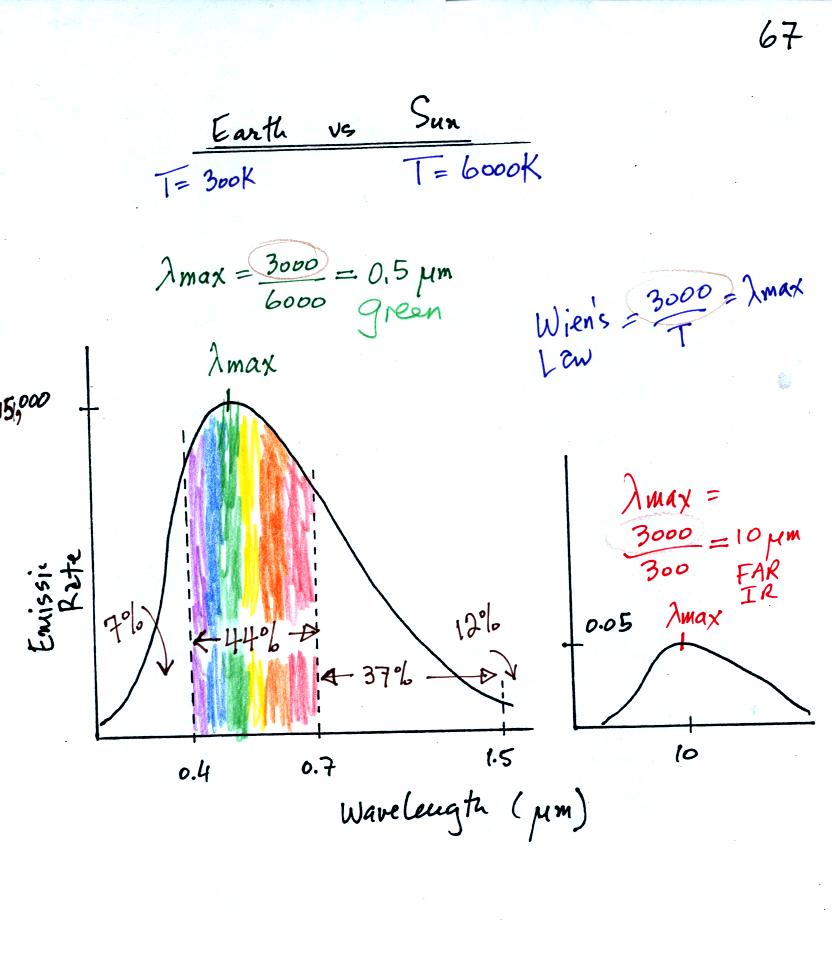 67
Earth vs Sun
T= 300K T= 6000K
λmax = 3000/6000 = 0.5 μm
green
Wien's Law = 3000/T = λmax
λmax
5,000
Emission Rate
7%
44%
37%
12%
0.4 0.7 1.5
Wavelength (μm)
λmax =
3000/300 = 10 μm
FAR
IR
λmax
0.05
10